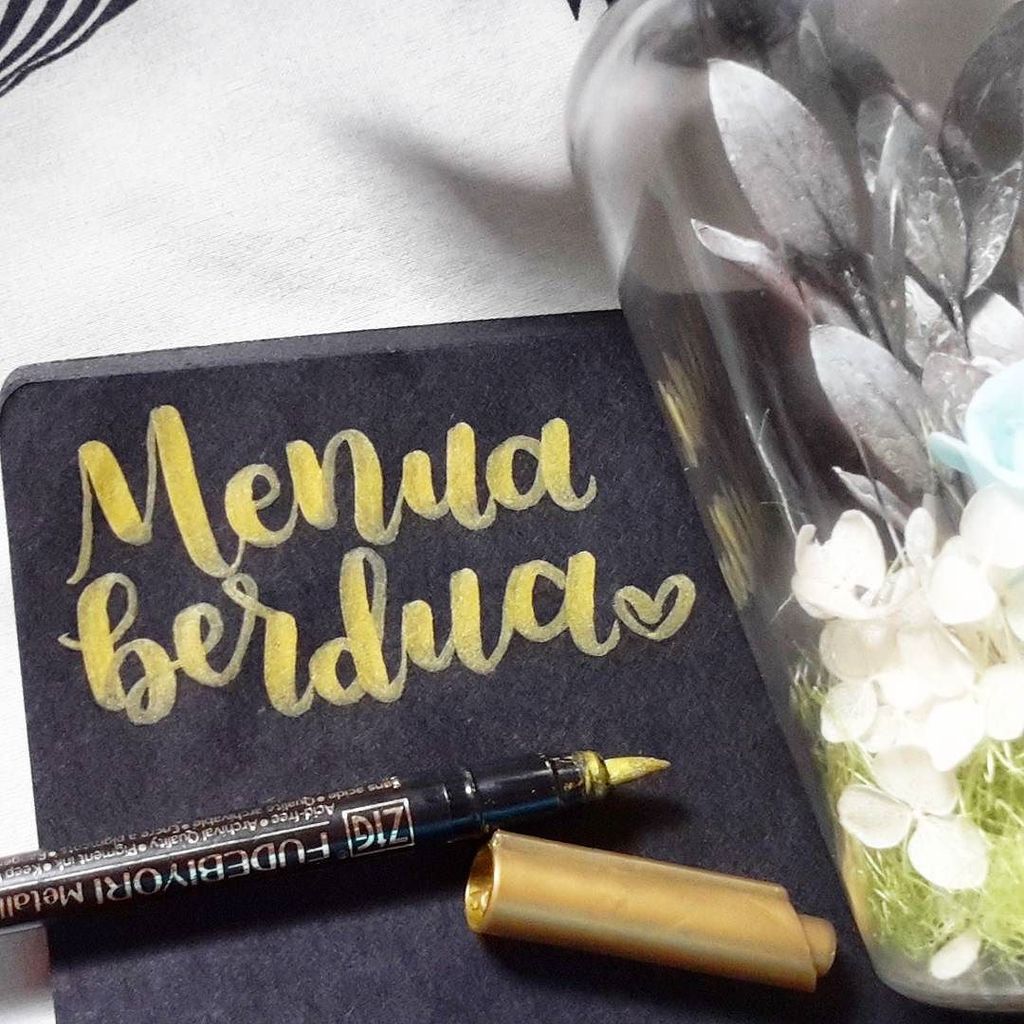 Menua
berdua
ZIG FUDEBIYORI Metalli
Acid-free • Archival Quality • Pigment ink • Keep
Sans acide • Qualité archivable • Encre à pig